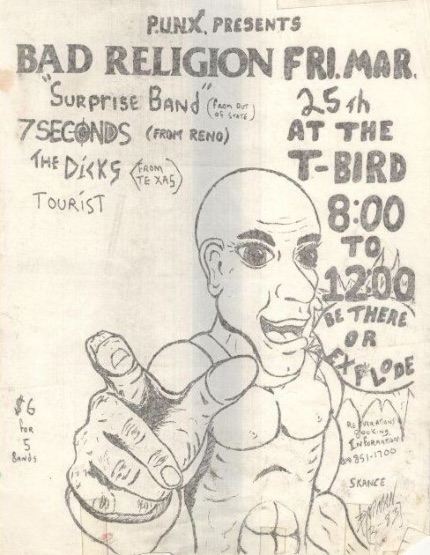 P.U.N.X. PRESENTS
BAD RELIGION
"SURPRISE BAND" (FROM OUT OF STATE)
7 SECONDS (FROM RENO)
THE DICKS (FROM TEXAS)
TOURIST
FRI. MAR.
25th
AT THE
T-BIRD
8:00
TO
12:00
BE THERE
OR
EXPLODE
$6
for
5
BANDS
BOOKING
INFORMATION
851-1700
SKANCE